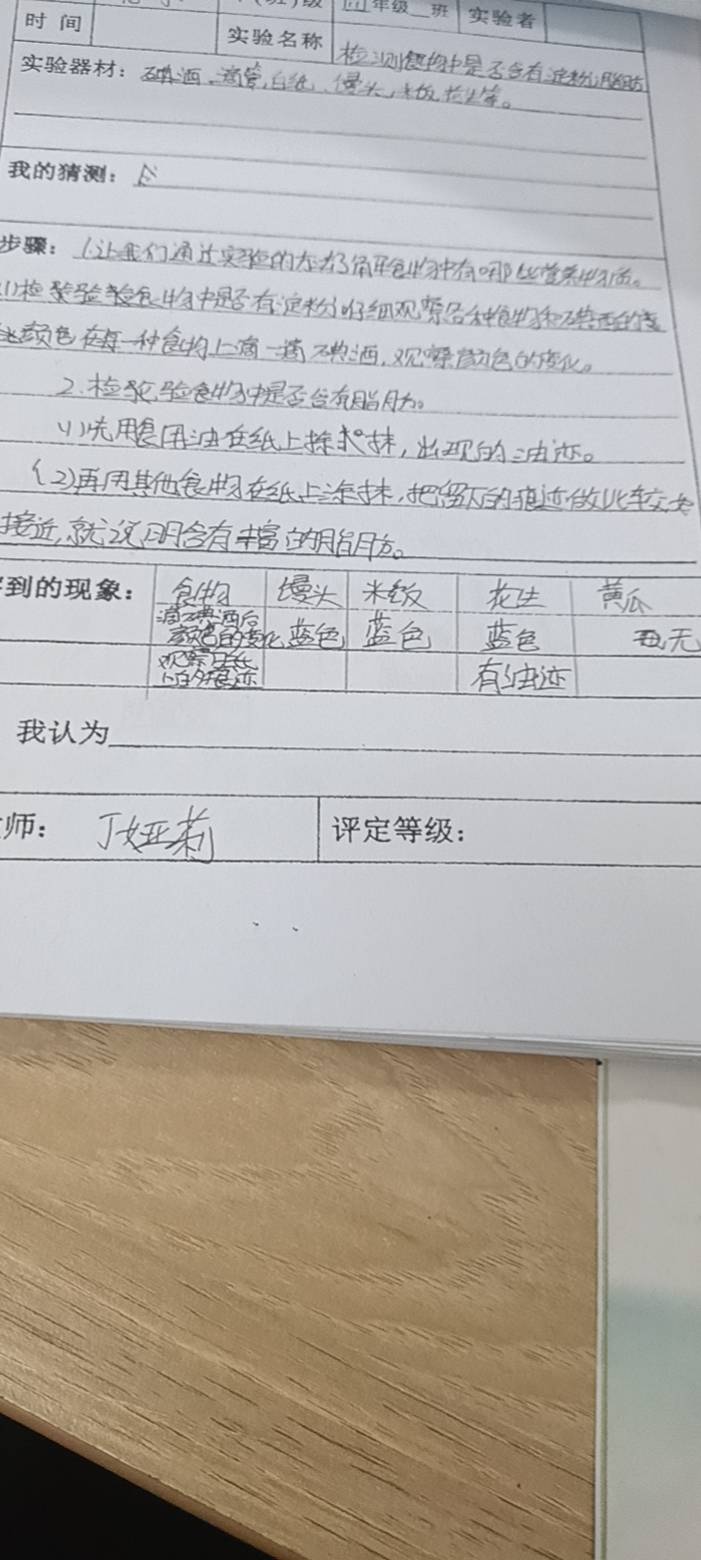 年级 班 实验者
时 间 实验名称 检测食物中是否含有淀粉、脂肪
实验器材：碘酒、滴管、白纸、馒头、米饭、花生等。
我的猜测：
步骤：1.让我们通过实验的方
(1)检验食物中是否有淀粉 仔细观察各种食物和碘酒的
颜色在每一种食物上滴一滴碘酒，观察颜色的变化。
2.检验食物中是否含有脂肪。
(1)先用食用油在纸上 抹，出现的油迹。
(2)再用其他食物在纸上涂抹，把留下的痕迹做比较
接近，就说明含有丰富的脂肪。
到的现象： 食物 馒头 米饭 花生 黄瓜
滴碘酒后
颜色的变化 蓝色 蓝色 蓝色 无
观察在纸
上的痕迹 有油迹
我认为
师： 丁娅莉 评定等级：